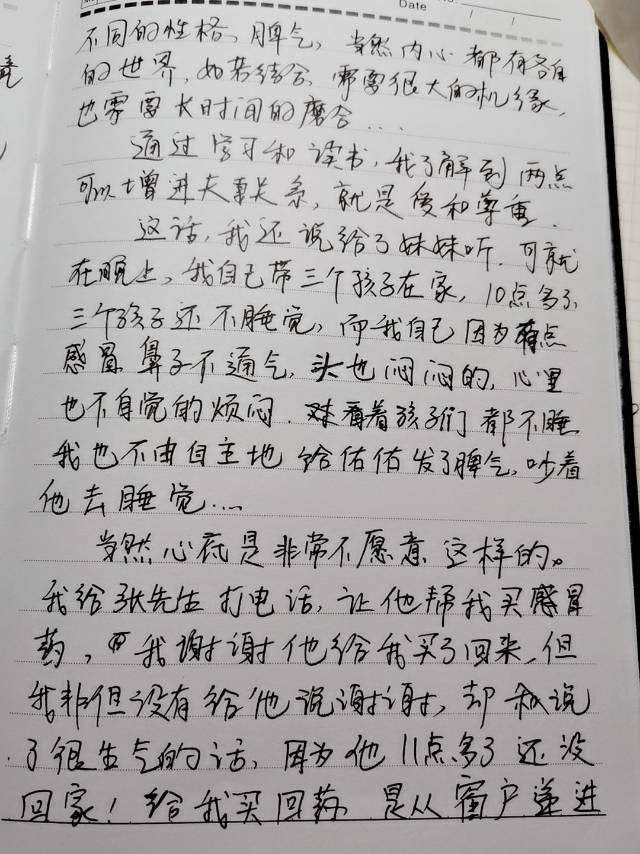 Date
不同的性格、脾气,当然内心都有各自
的世界,如若结合,需要很大的机缘,
也需要长时间的磨合...
通过学习和读书,我了解到两点
可以增进夫妻关系,就是爱和尊重.
这话,我还说给了妹妹听.可就
在晚上,我自己带三个孩子在家,10点多了
三个孩子还不睡觉,而我自己因为有点
感冒鼻子不通气,头也闷闷的,心里
也不自觉的烦闷.看着孩子们都不睡
我也不由自主地给佑佑发了脾气,吵着
他去睡觉....
当然心底是非常不愿意这样的。
我给张先生打电话,让他帮我买感冒
药,我谢谢他给我买了回来,但
我非但没有给他说谢谢,却说
了很生气的话,因为他11点多了还没
回家!给我买回药是从窗户递进